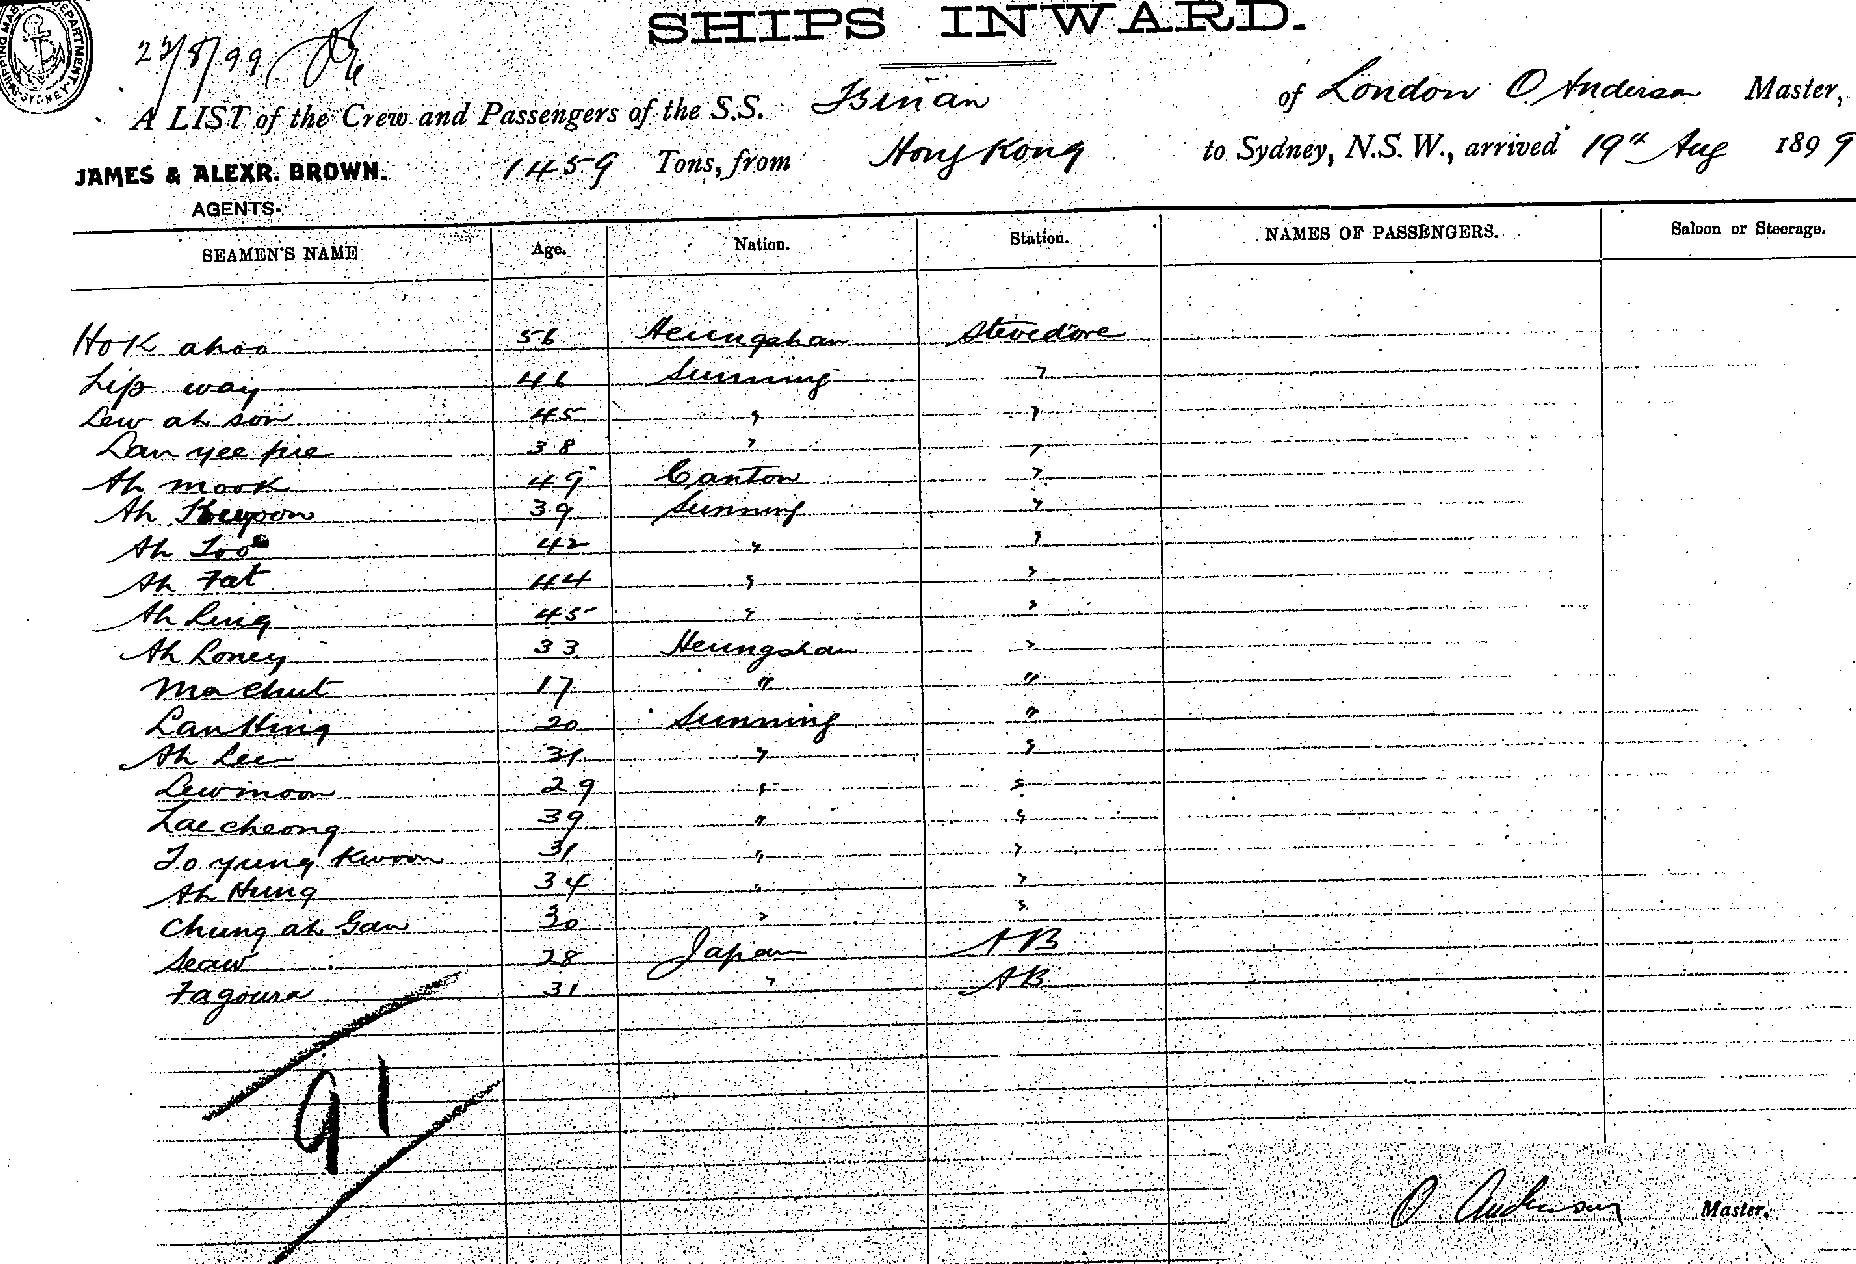 SHIPS INWARD.
SHIPPING MASTER'S DEPARTMENT SYDNEY
/8/99
A LIST of the Crew and Passengers of the S.S. Tsinan of London O. Anderson Master,
JAMES & ALEXR. BROWN. 1459 Tons, from Hong Kong to Sydney, N.S.W., arrived 19th Aug 1899
AGENTS.
SEAMEN'S NAME Age. Nation. Station. NAMES OF PASSENGERS. Saloon or Steerage.
Hok ahoo 56 Heungshan Stevedore
Lip way 46 Sunning "
Lew ah son 45 " "
Lan yee pie 38 " "
Ah mook 49 Canton "
Ah 39 Sunning "
Ah Too 42 " "
Ah Fat 44 " "
Ah Ling 45 " "
Ah Loney 33 Heungshan "
Ma Chut 17 " "
Lan Hing 20 Sunning "
Ah Lee 31 " "
Lew moon 29 " "
Lae cheong 39 " "
To yung Kwoon 31 " "
Ah Hung 34 " "
Chung ah Gan 30 " "
Seaw 28 Japan AB
Fagoura 31 " AB
91
O. Anderson Master.